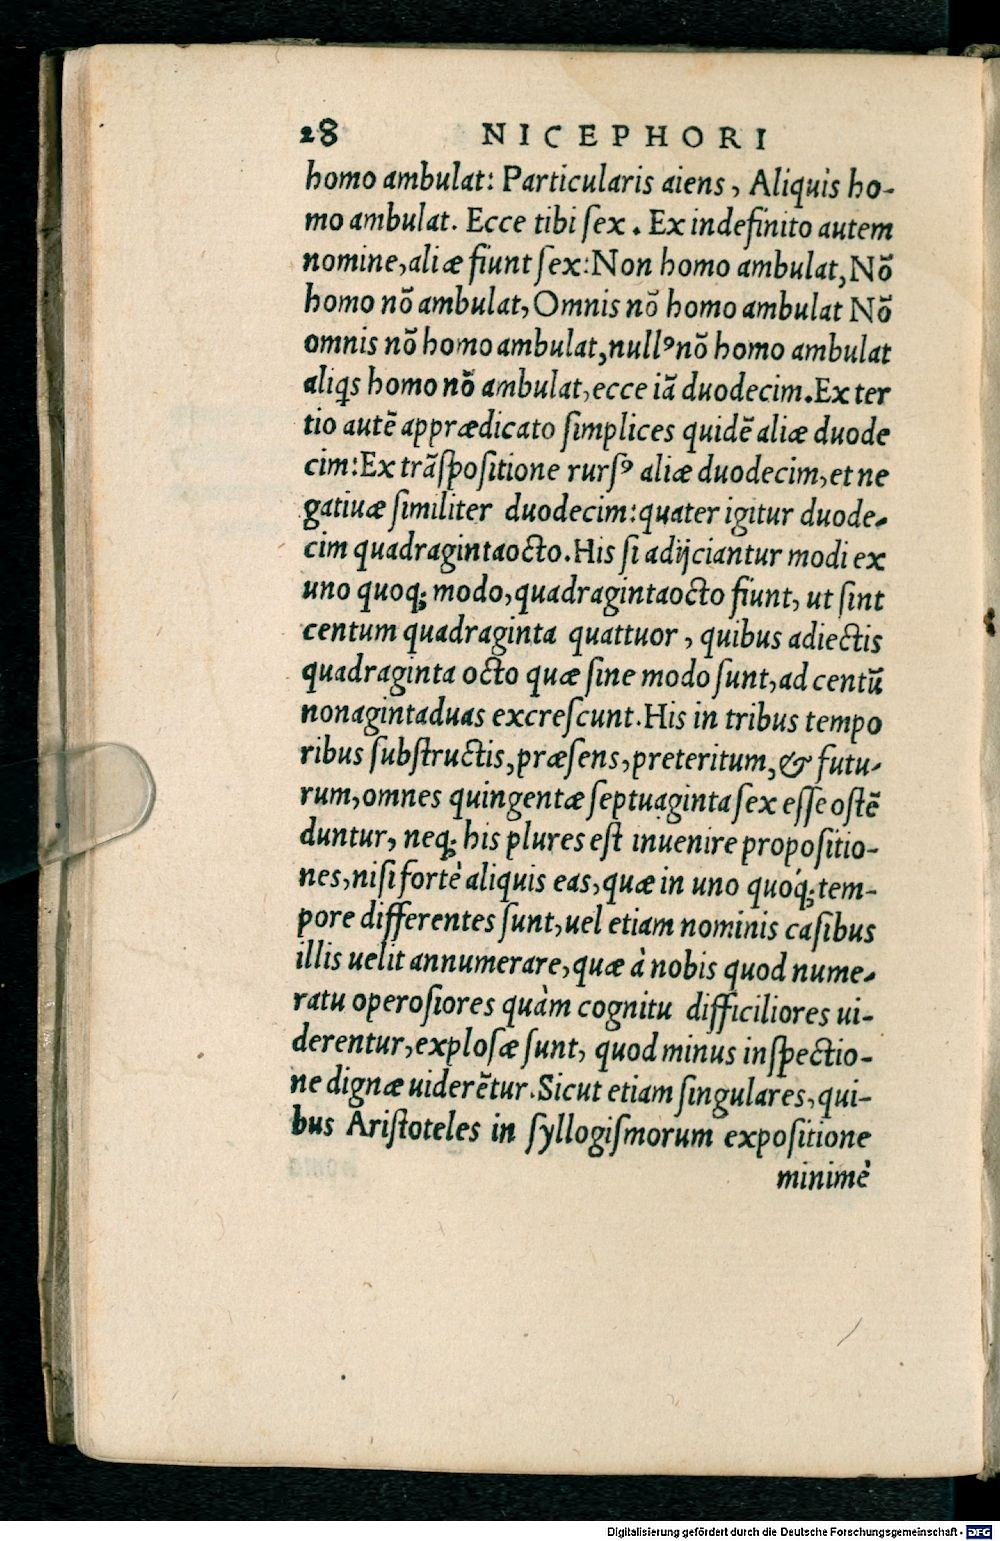 28 NICEPHORI
homo ambulat: Particularis aiens, Aliquis ho-
mo ambulat. Ecce tibi ſex. Ex indefinito autem
nomine, aliæ fiunt ſex: Non homo ambulat, Nõ
homo nõ ambulat, Omnis nõ homo ambulat Nõ
omnis nõ homo ambulat, nullꝰ nõ homo ambulat
aliꝗs homo nõ ambulat, ecce iã duodecim. Ex ter
tio autẽ apprædicato ſimplices quidẽ aliæ duode
cim: Ex trãſpoſitione rurſꝰ aliæ duodecim, et ne
gatiuæ ſimiliter duodecim: quater igitur duode-
cim quadragintaocto. His ſi adijciantur modi ex
uno quoq; modo, quadragintaocto fiunt, ut ſint
centum quadraginta quattuor, quibus adiectis
quadraginta octo quæ ſine modo ſunt, ad centũ
nonagintaduas excreſcunt. His in tribus tempo
ribus ſubſtructis, præſens, preteritum, & futu-
rum, omnes quingentæ ſeptuaginta ſex eſſe oſtẽ
duntur, neq; his plures eſt inuenire propoſitio-
nes, niſi fortè aliquis eas, quæ in uno quoq́; tem-
pore differentes ſunt, uel etiam nominis caſibus
illis uelit annumerare, quæ à nobis quod nume-
ratu operoſiores quàm cognitu difficiliores ui-
derentur, exploſæ ſunt, quod minus inſpectio-
ne dignæ uiderẽtur. Sicut etiam ſingulares, qui-
bus Ariſtoteles in ſyllogiſmorum expoſitione
minimè
Digitalisierung gefördert durch die Deutsche Forschungsgemeinschaft - DFG